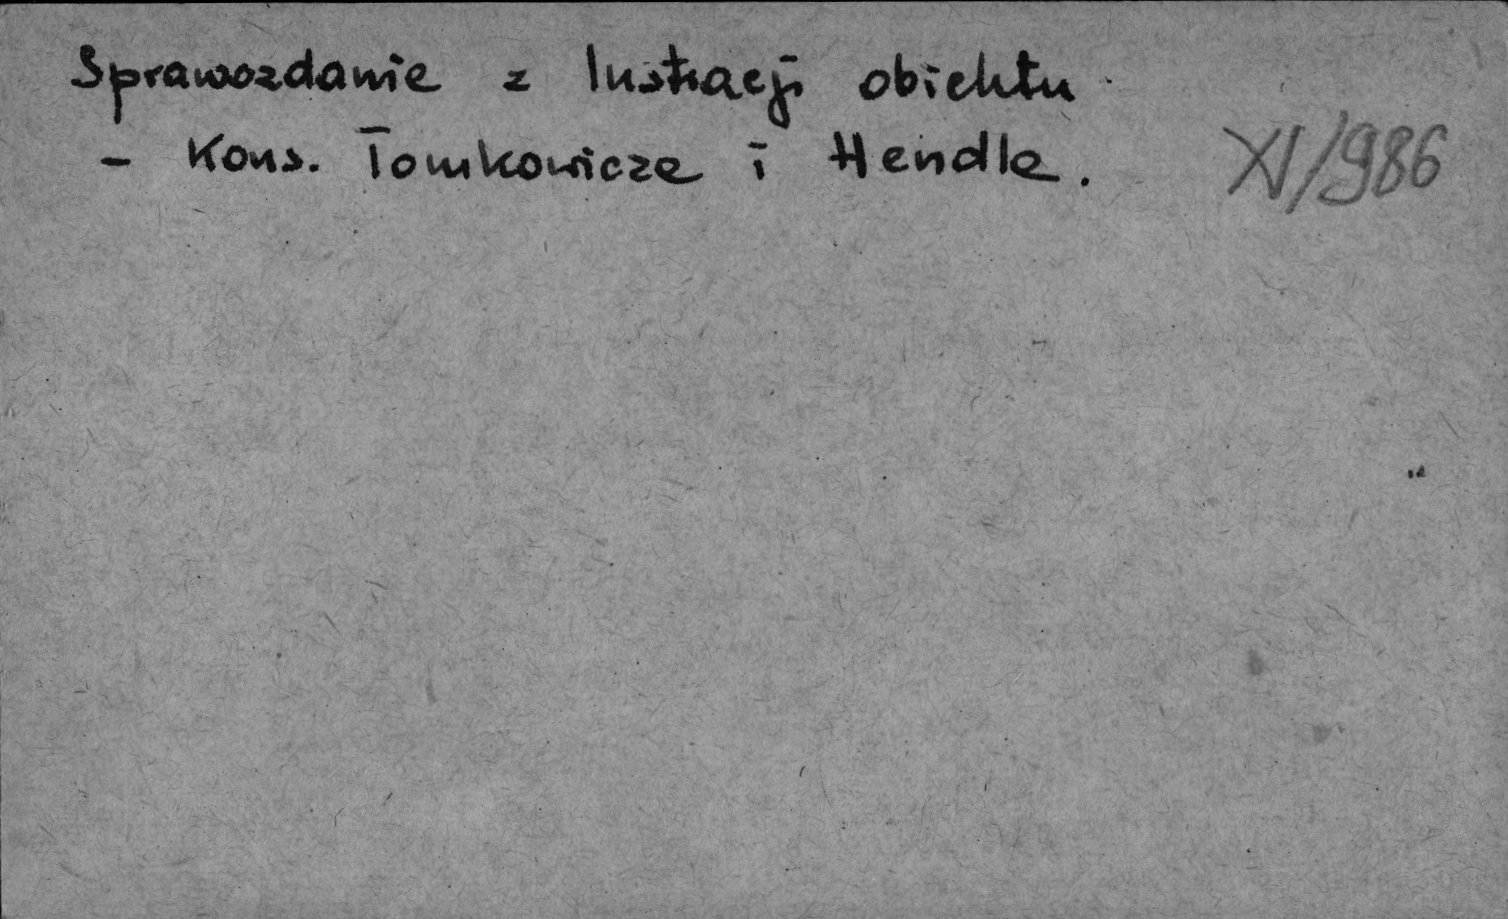 Sprawozdanie z lustracji obiektu
- Kons. Tomkowicze i Hendle.
XI/986